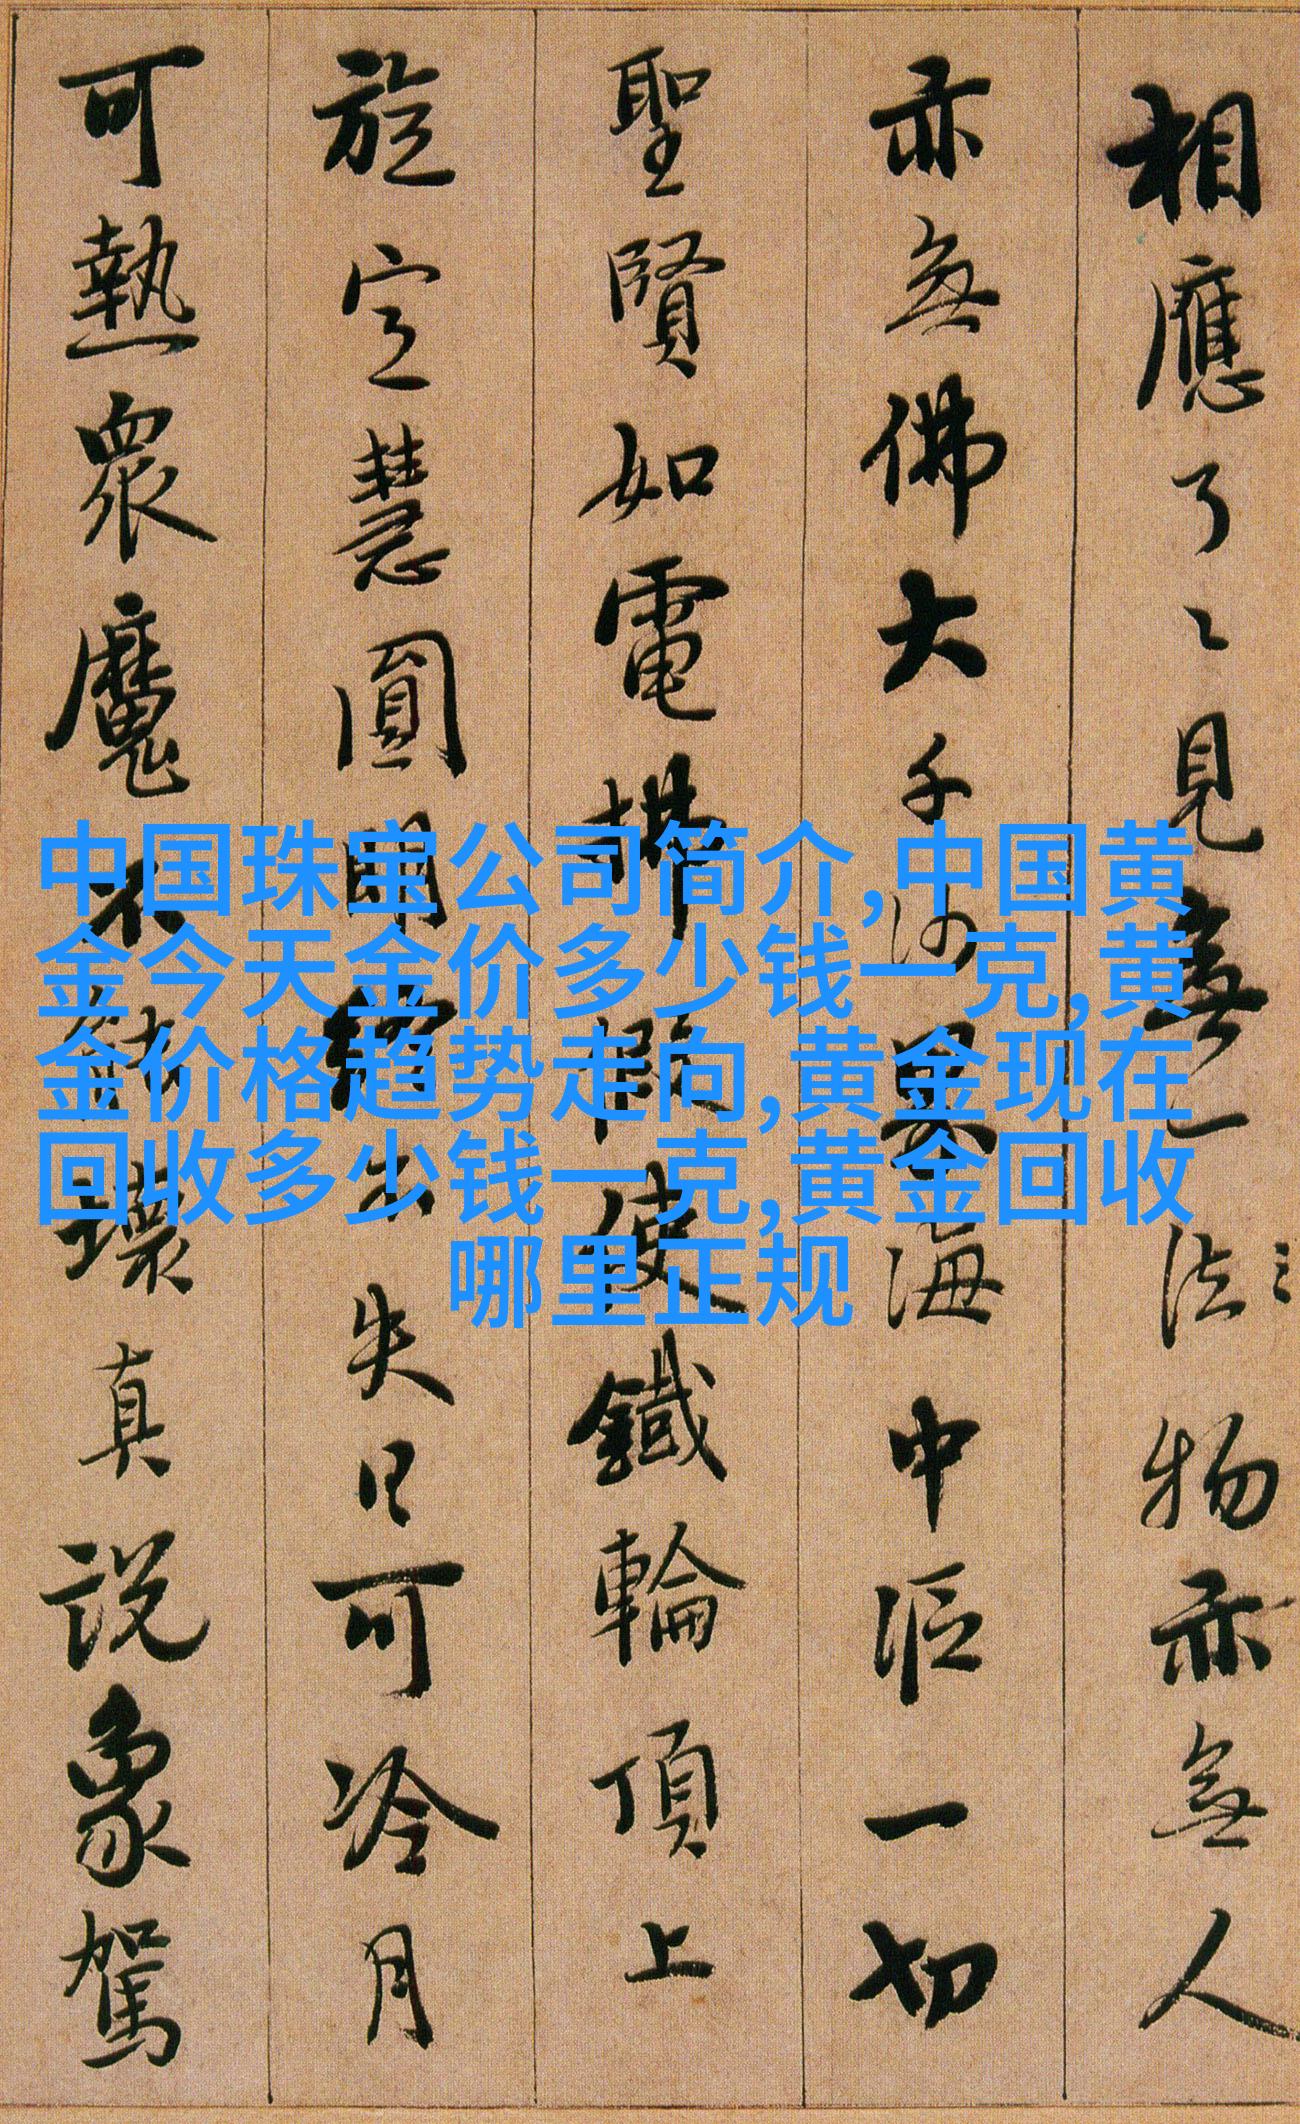 相應了〻見無一法物亦無人
亦無佛大千沙界海中漚一切
聖賢如電拂假使鐵輪頂上
旋定慧圓明終不失日可冷月
可熱眾魔不能壞真説象駕
中国珠宝公司简介,中国黄
金今天金价多少钱一克,黄
金价格趋势走向,黄金现在
回收多少钱一克,黄金回收
哪里正规